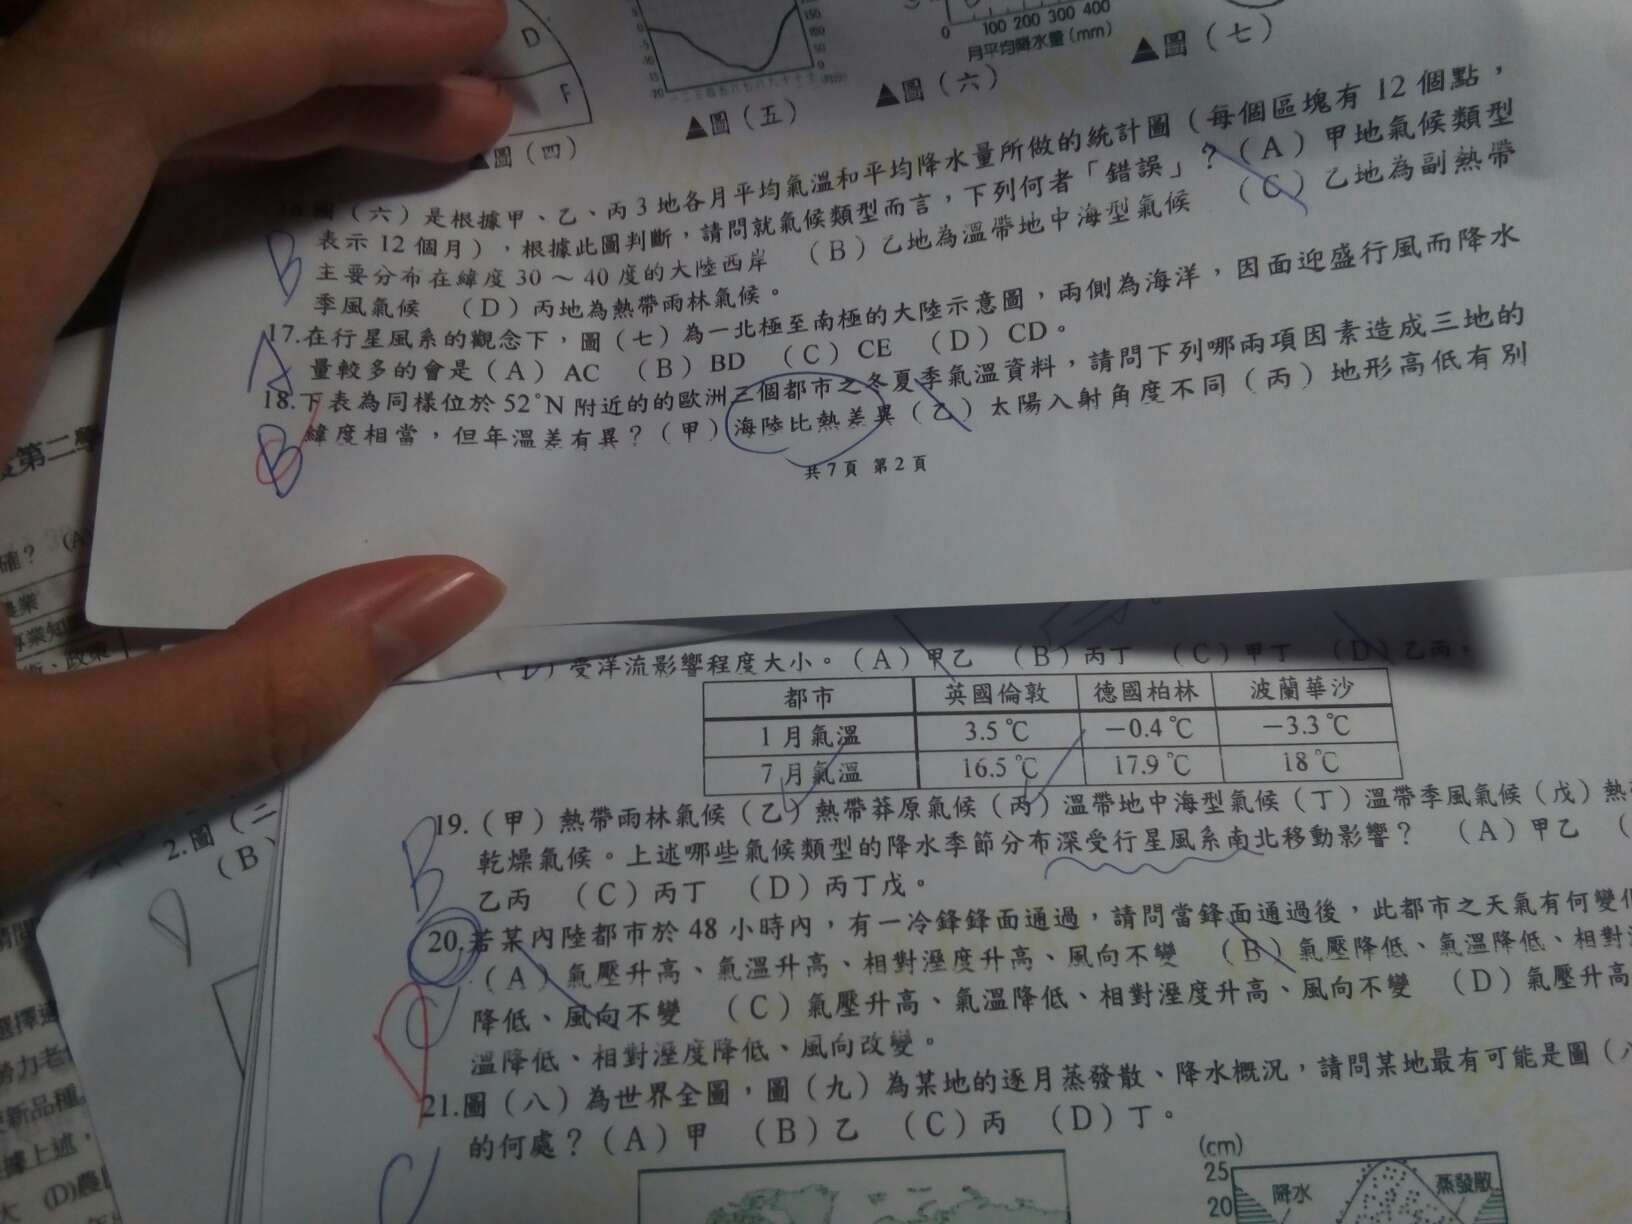 D
F
▲圖（四）
▲圖（五）
0 100 200 300 400
月平均降水量(mm)
▲圖（六）
▲圖（七）
圖（六）是根據甲、乙、丙3地各月平均氣溫和平均降水量所做的統計圖（每個區塊有12個點，
表示12個月），根據此圖判斷，請問就氣候類型而言，下列何者「錯誤」？（A）甲地氣候類型
主要分布在緯度30～40度的大陸西岸 （B）乙地為溫帶地中海型氣候 （C）乙地為副熱帶
季風氣候 （D）丙地為熱帶雨林氣候。
B
17.在行星風系的觀念下，圖（七）為一北極至南極的大陸示意圖，兩側為海洋，因面迎盛行風而降水
量較多的會是（A）AC （B）BD （C）CE （D）CD。
A
18.下表為同樣位於52°N附近的的歐洲三個都市之冬夏季氣溫資料，請問下列哪兩項因素造成三地的
緯度相當，但年溫差有異？（甲）海陸比熱差異（乙）太陽入射角度不同（丙）地形高低有別
B
共7頁 第2頁
（丁）受洋流影響程度大小。（A）甲乙 （B）丙丁 （C）甲丁 （D）乙丙。
都市 英國倫敦 德國柏林 波蘭華沙
1月氣溫 3.5℃ －0.4℃ －3.3℃
7月氣溫 16.5℃ 17.9℃ 18℃
19.（甲）熱帶雨林氣候（乙）熱帶莽原氣候（丙）溫帶地中海型氣候（丁）溫帶季風氣候（戊）熱
乾燥氣候。上述哪些氣候類型的降水季節分布深受行星風系南北移動影響？ （A）甲乙 （
乙丙 （C）丙丁 （D）丙丁戊。
B
20.若某內陸都市於48小時內，有一冷鋒鋒面通過，請問當鋒面通過後，此都市之天氣有何變化
（A）氣壓升高、氣溫升高、相對溼度升高、風向不變 （B）氣壓降低、氣溫降低、相對
降低、風向不變 （C）氣壓升高、氣溫降低、相對溼度升高、風向不變 （D）氣壓升高
溫降低、相對溼度降低、風向改變。
C
D
21.圖（八）為世界全圖，圖（九）為某地的逐月蒸發散、降水概況，請問某地最有可能是圖（八
的何處？（A）甲 （B）乙 （C）丙 （D）丁。
C
(cm)
25
20
降水
蒸發散
第二學
確？（A
2.圖（二
（B）
選擇
勞力
新品種
據上述，
大 (D)農